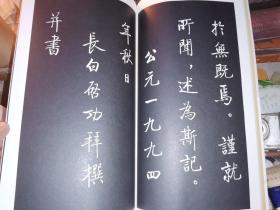 於無既焉。謹就
所聞，述為斯記。
公元一九九四
年秋日
長白启功拜撰
并書